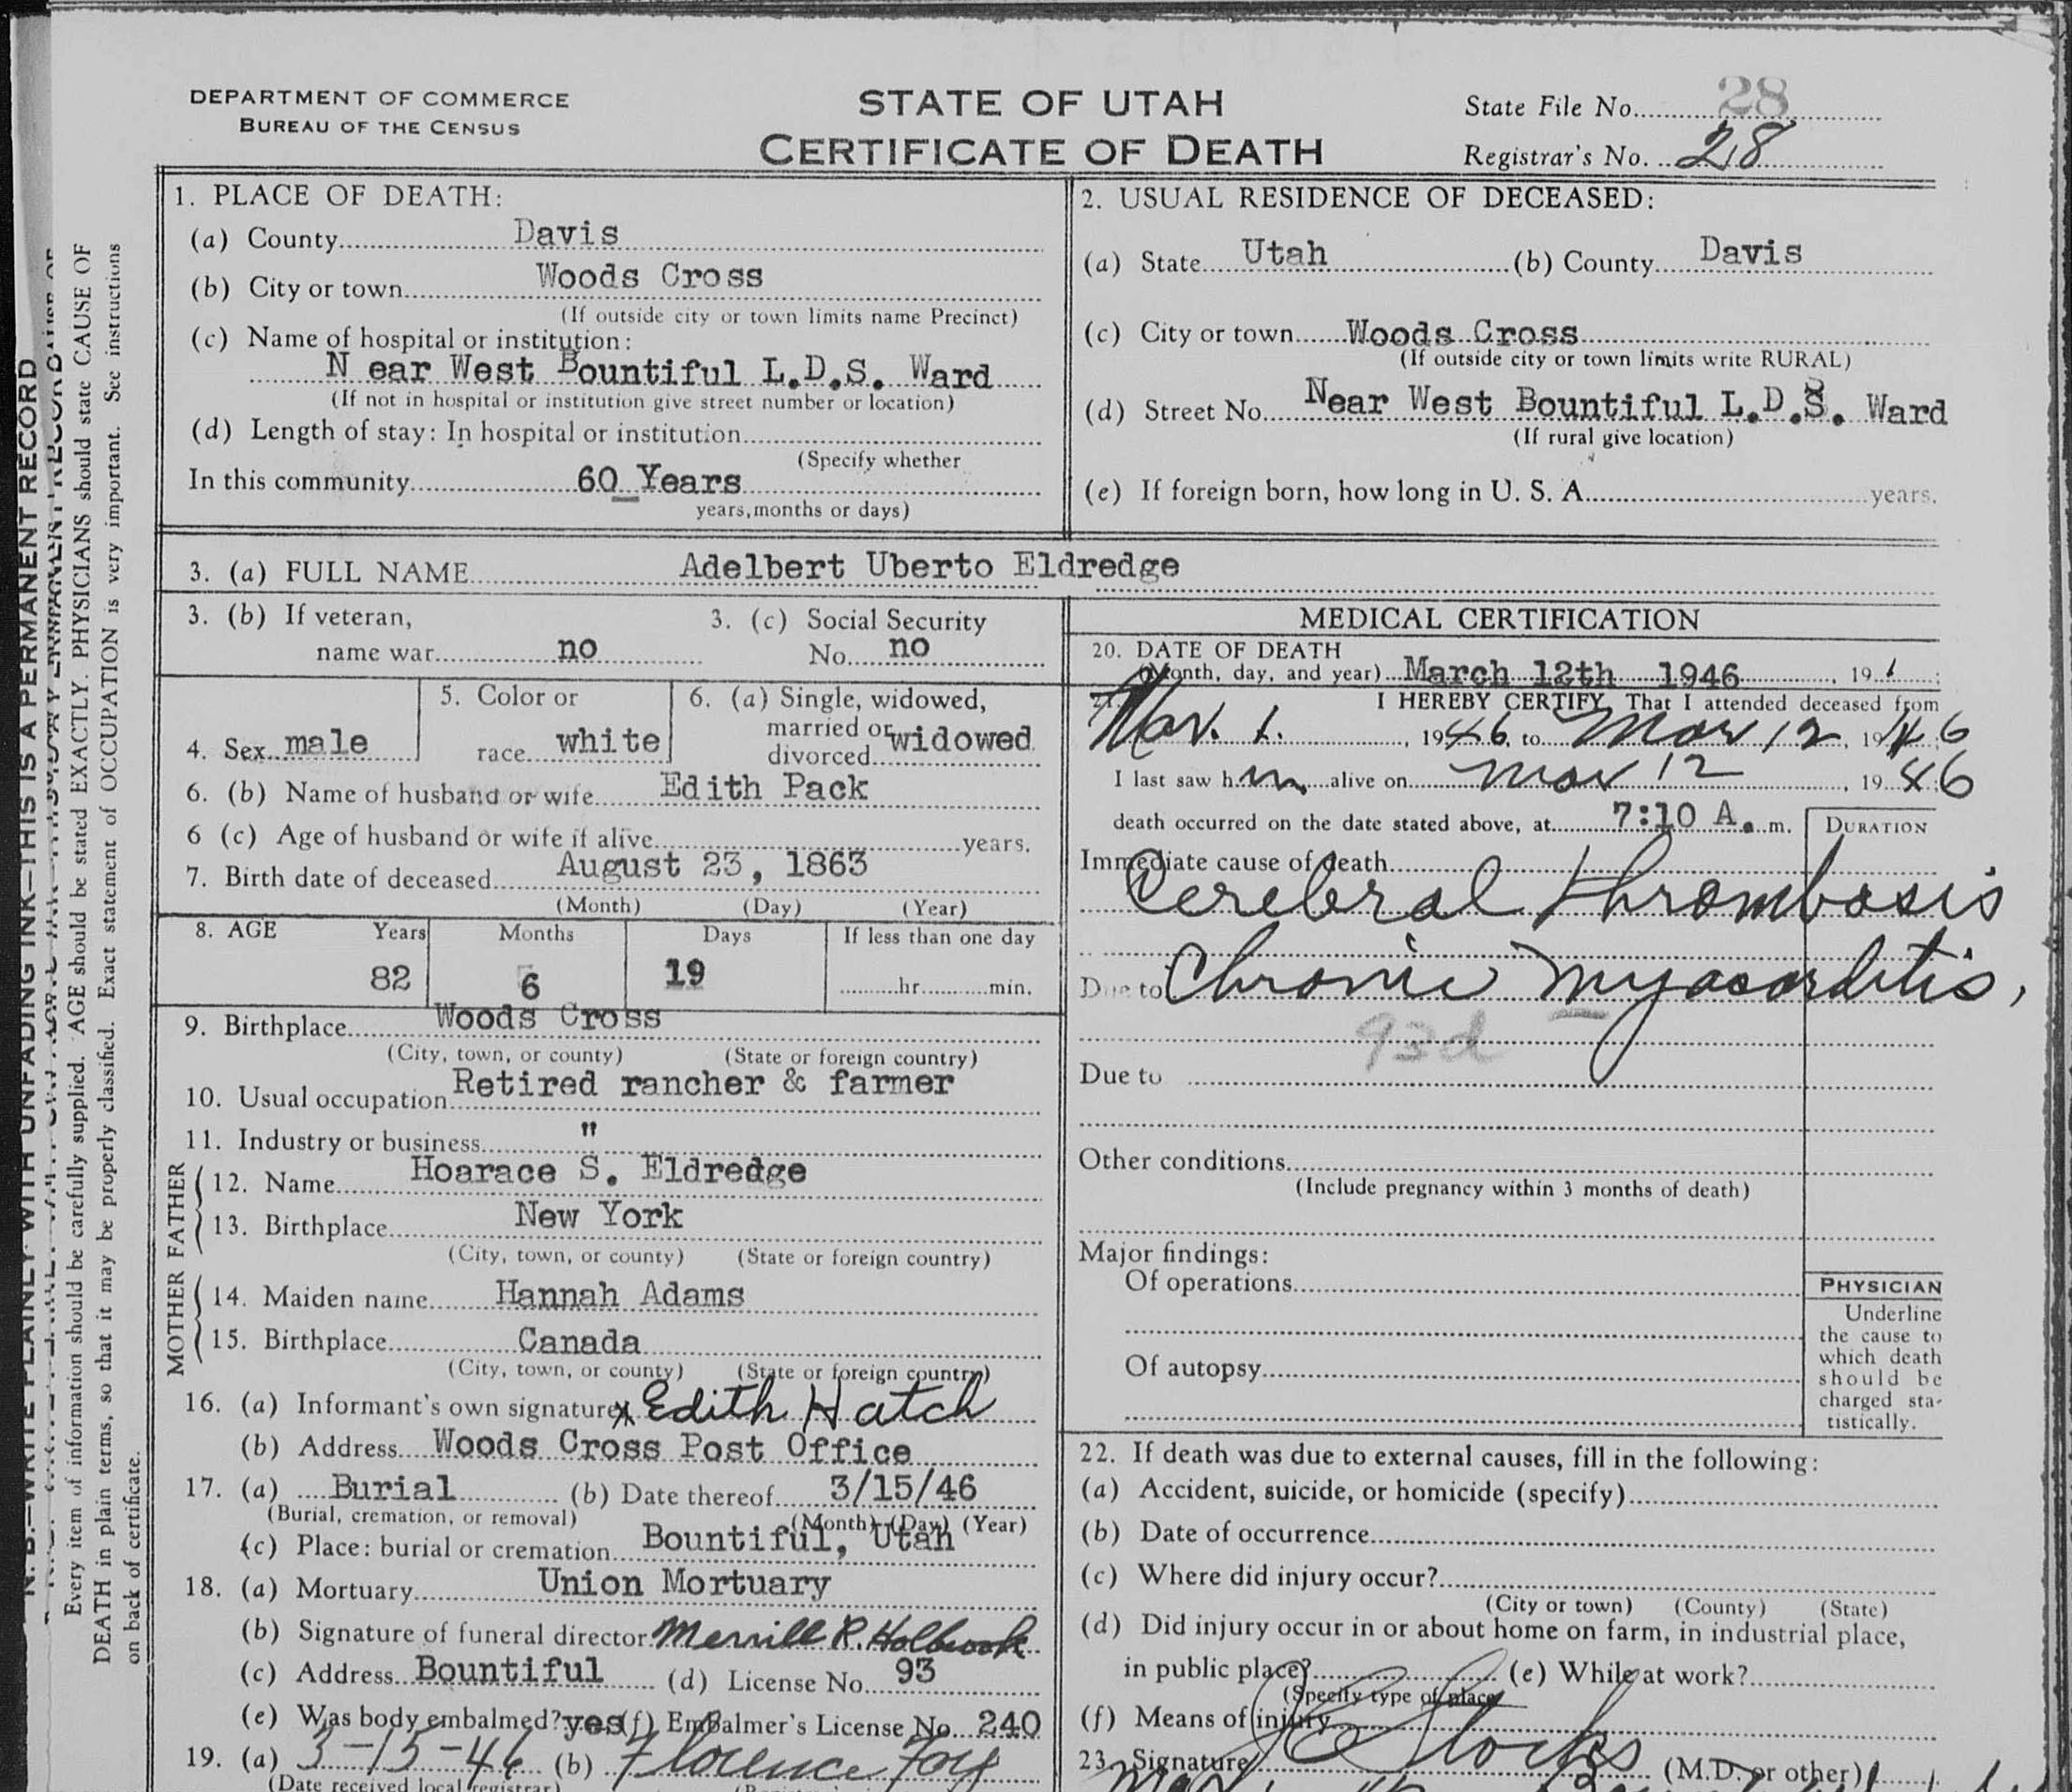 DEPARTMENT OF COMMERCE
BUREAU OF THE CENSUS
STATE OF UTAH
CERTIFICATE OF DEATH
State File No. 28
Registrar's No. 28
1. PLACE OF DEATH:
(a) County Davis
(b) City or town Woods Cross
(If outside city or town limits name Precinct)
(c) Name of hospital or institution:
N ear West Bountiful L.D.S. Ward
(If not in hospital or institution give street number or location)
(d) Length of stay: In hospital or institution
(Specify whether
In this community 60 Years
years, months or days)
2. USUAL RESIDENCE OF DECEASED:
(a) State Utah (b) County Davis
(c) City or town Woods Cross
(If outside city or town limits write RURAL)
(d) Street No. Near West Bountiful L.D.S. Ward
(If rural give location)
(e) If foreign born, how long in U. S. A. years.
3. (a) FULL NAME Adelbert Uberto Eldredge
3. (b) If veteran,
name war no
3. (c) Social Security
No. no
4. Sex male
5. Color or
race white
6. (a) Single, widowed,
married or
divorced widowed
6. (b) Name of husband or wife Edith Pack
6 (c) Age of husband or wife if alive years.
7. Birth date of deceased August 23, 1863
(Month) (Day) (Year)
8. AGE Years Months Days If less than one day
82 6 19 hr. min.
9. Birthplace Woods Cross
(City, town, or county) (State or foreign country)
10. Usual occupation Retired rancher & farmer
11. Industry or business "
FATHER
12. Name Hoarace S. Eldredge
13. Birthplace New York
(City, town, or county) (State or foreign country)
MOTHER
14. Maiden name Hannah Adams
15. Birthplace Canada
(City, town, or county) (State or foreign country)
16. (a) Informant's own signature x Edith Hatch
(b) Address Woods Cross Post Office
17. (a) Burial (b) Date thereof 3/15/46
(Burial, cremation, or removal) (Month) (Day) (Year)
(c) Place: burial or cremation Bountiful, Utah
18. (a) Mortuary Union Mortuary
(b) Signature of funeral director Merrill R. Holbrook
(c) Address Bountiful (d) License No. 93
(e) Was body embalmed? yes (f) Embalmer's License No. 240
19. (a) 3-15-46 (b) Florence Foy
(Date received local registrar)
MEDICAL CERTIFICATION
20. DATE OF DEATH
(Month, day, and year) March 12th 1946, 19
21. I HEREBY CERTIFY, That I attended deceased from
Mar. 1. , 1946, to Mar 12, 1946
I last saw him alive on Mar 12, 1946
death occurred on the date stated above, at 7:10 A. m.
DURATION
Immediate cause of death
Cerebral thrombosis
Due to Chronic myocarditis,
93d
Due to
Other conditions
(Include pregnancy within 3 months of death)
Major findings:
Of operations
Of autopsy
PHYSICIAN
Underline
the cause to
which death
should be
charged sta-
tistically.
22. If death was due to external causes, fill in the following:
(a) Accident, suicide, or homicide (specify)
(b) Date of occurrence
(c) Where did injury occur?
(City or town) (County) (State)
(d) Did injury occur in or about home on farm, in industrial place,
in public place? (e) While at work?
(Specify type of place)
(f) Means of injury
23. Signature Stocks (M.D. or other)
N. B.—WRITE PLAINLY WITH UNFADING INK—THIS IS A PERMANENT RECORD
Every item of information should be carefully supplied. AGE should be stated EXACTLY. PHYSICIANS should state CAUSE OF
DEATH in plain terms, so that it may be properly classified. Exact statement of OCCUPATION is very important. See instructions
on back of certificate.